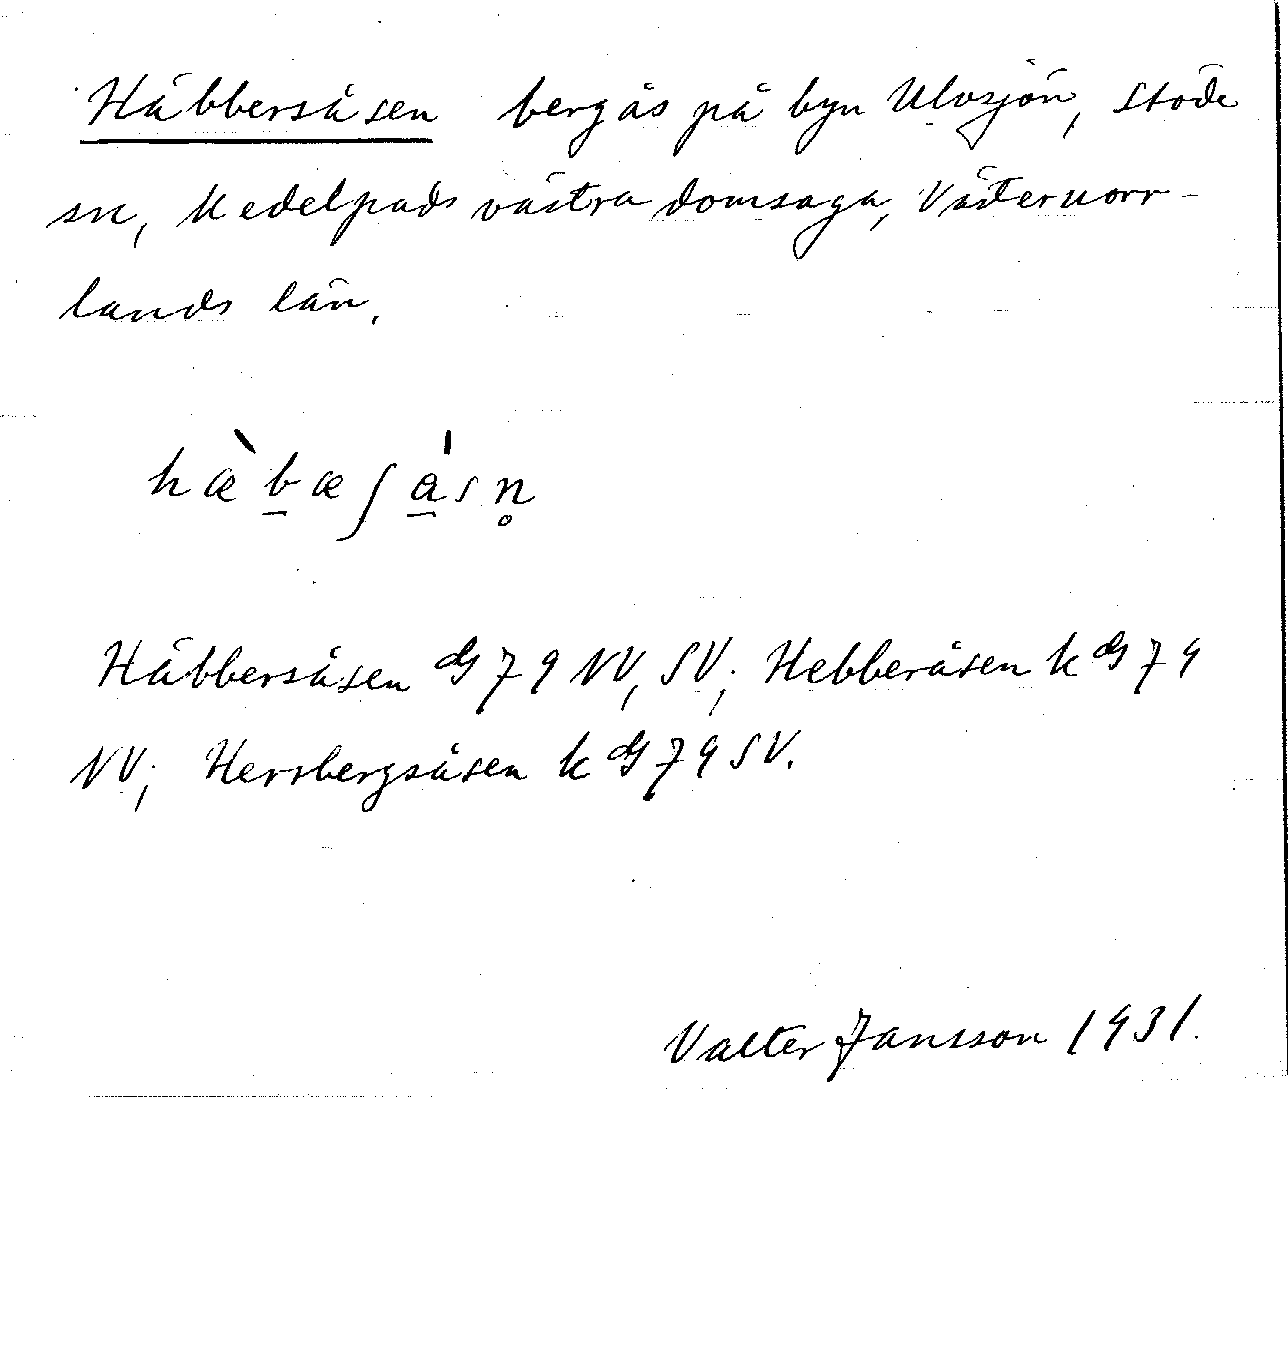 Häbbersåsen bergås på byn Ulvsjön, Stöde
sn, Medelpads västra domsaga, Västernorr-
lands län.
hæ̀b̲æʃǻ̲sn̥
Häbbersåsen dG 79 NV, SV; Hebberåsen k dG 79
NV; Herrbergsåsen k dG 79 SV.
Valter Jansson 1931.